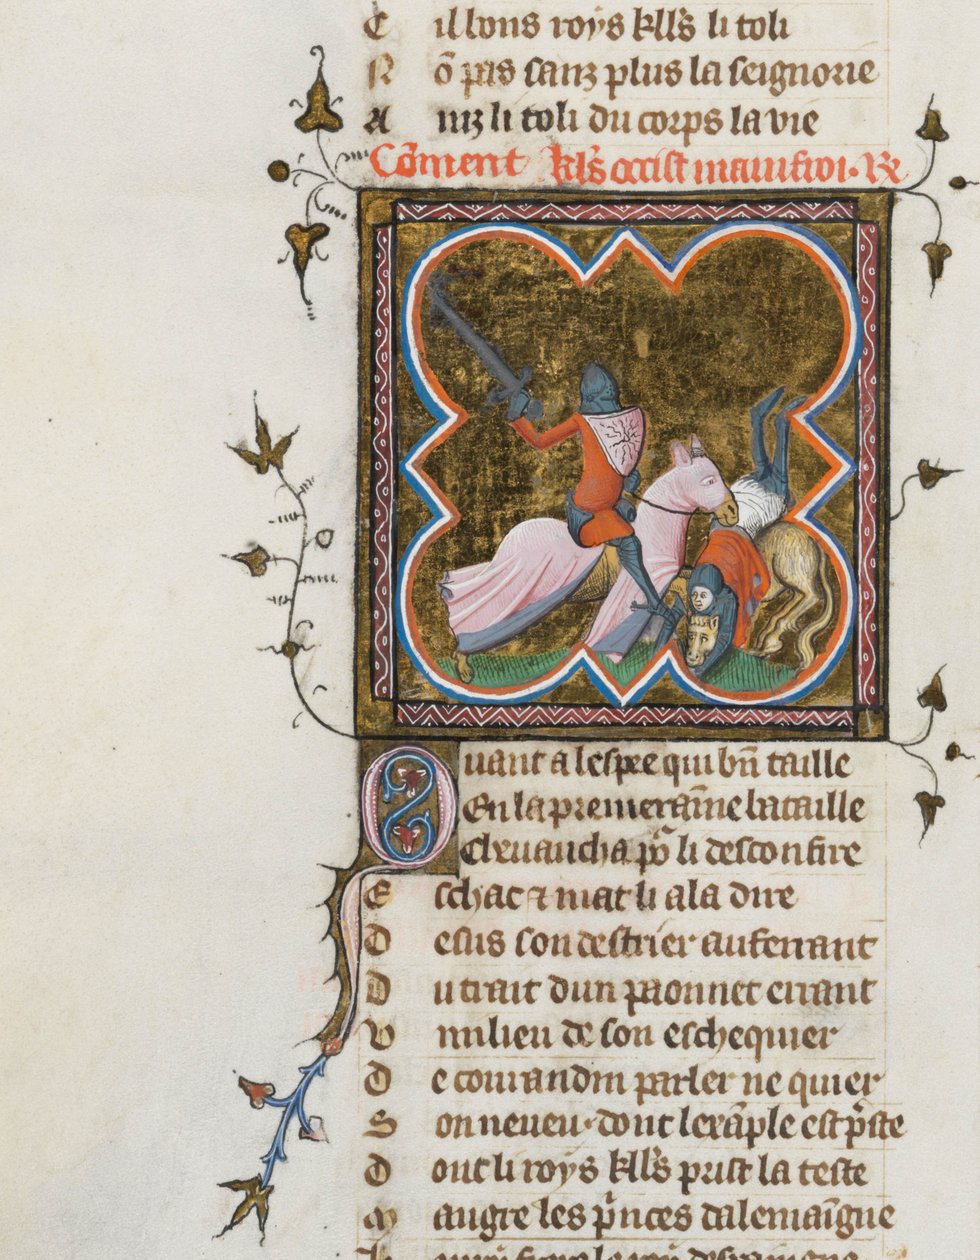 C il bons roys kll's li toli
N õ pas sanz plus la seignorie
A inz li toli du corps la vie
Cõment kl's occist mainfroi. Rx
Quant a lespee qui bñ taille
En la premeraine bataille
Cheuaucha po' li desconfire
E schac ⁊ mat li ala dire
D esus son destrier auferrant
D u trait dun paonnet errant
U milieu de son eschequier
D e corrandin parler ne quier
S on neueu·dont lexãple est p̃ste
D ont li roys kll's prist la teste
M augre les p̃nces dalemaĩgne